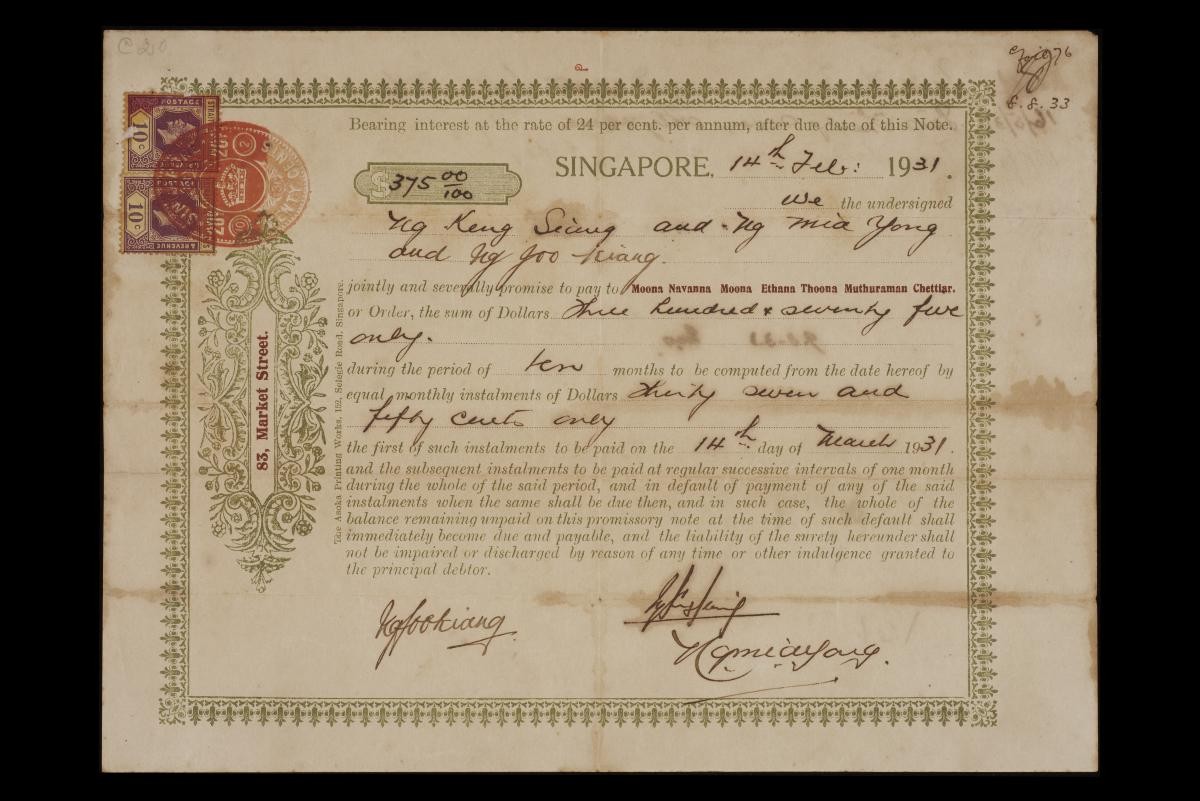 C20
8.8.33
Bearing interest at the rate of 24 per cent. per annum, after due date of this Note.
SINGAPORE, 14th Feb: 1931.
$375 00/100
We the undersigned
Ng Keng Siang and Ng Mia Yong
and Ng Joo Kiang.
jointly and severally promise to pay to Moona Navanna Moona Ethana Thoona Muthuraman Chettiar.
or Order, the sum of Dollars three hundred & seventy five
only.
during the period of ten months to be computed from the date hereof by
equal monthly instalments of Dollars thirty seven and
fifty cents only
the first of such instalments to be paid on the 14th day of March 1931.
and the subsequent instalments to be paid at regular successive intervals of one month
during the whole of the said period, and in default of payment of any of the said
instalments when the same shall be due then, and in such case, the whole of the
balance remaining unpaid on this promissory note at the time of such default shall
immediately become due and payable, and the liability of the surety hereunder shall
not be impaired or discharged by reason of any time or other indulgence granted to
the principal debtor.
Ng Joo Kiang
Ng Mia Yong.
83, Market Street.
The Asoka Printing Works, 152, Selegie Road, Singapore.
POSTAGE
10c
10c
& REVENUE